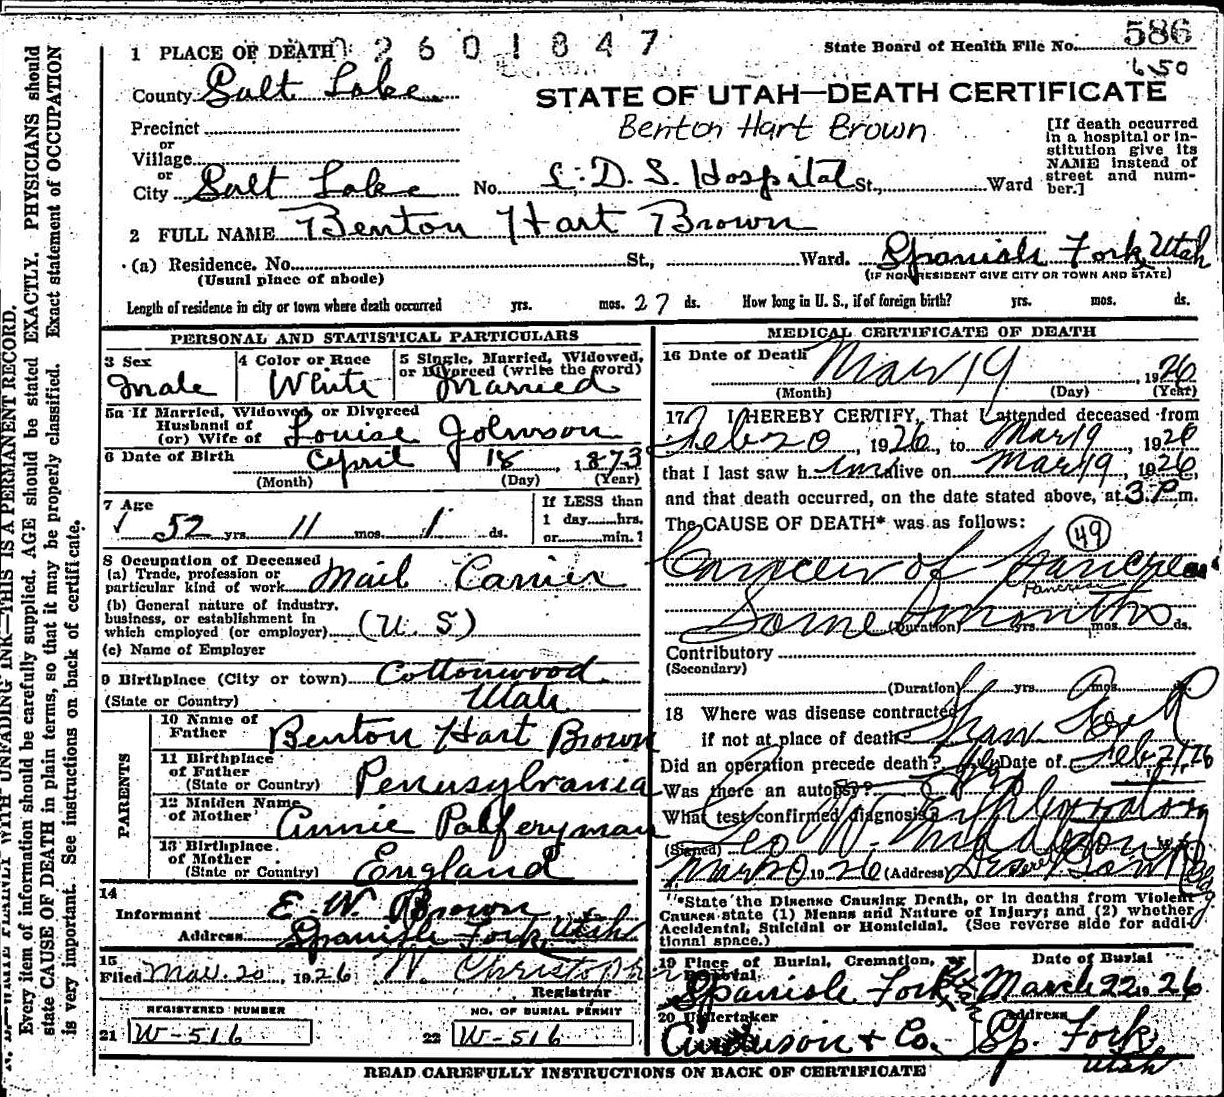 586
State Board of Health File No.
650
2601847
1 PLACE OF DEATH
County Salt Lake
STATE OF UTAH—DEATH CERTIFICATE
Benton Hart Brown
Precinct
or
Village
or
City Salt Lake No. L.D.S. Hospital St., Ward
[If death occurred
in a hospital or in-
stitution give its
NAME instead of
street and num-
ber.]
2 FULL NAME Benton Hart Brown
(a) Residence. No. St., Ward. Spanish Fork, Utah
(Usual place of abode) (IF NON RESIDENT GIVE CITY OR TOWN AND STATE)
Length of residence in city or town where death occurred yrs. mos. 27 ds. How long in U. S., if of foreign birth? yrs. mos. ds.
PERSONAL AND STATISTICAL PARTICULARS
3 Sex
Male
4 Color or Race
White
5 Single, Married, Widowed,
or Divorced (write the word)
Married
5a If Married, Widowed, or Divorced
Husband of
(or) Wife of Louise Johnson
6 Date of Birth April 18, 1873
(Month) (Day) (Year)
7 Age
52 yrs. 11 mos. 1 ds.
If LESS than
1 day hrs.
or min.?
8 Occupation of Deceased
(a) Trade, profession or
particular kind of work Mail Carrier
(b) General nature of industry,
business, or establishment in
which employed (or employer) (U S)
(c) Name of Employer
9 Birthplace (City or town) Cottonwood
(State or Country) Utah
PARENTS
10 Name of
Father Benton Hart Brown
11 Birthplace
of Father
(State or Country) Pennsylvania
12 Maiden Name
of Mother Annie Palferyman
13 Birthplace
of Mother
(State or Country) England
14
Informant E. W. Brown
Address Spanish Fork, Utah
15
Filed Mar. 20, 1926 W. Christopher
Registrar
REGISTERED NUMBER
21 W-516
NO. OF BURIAL PERMIT
22 W-516
MEDICAL CERTIFICATE OF DEATH
16 Date of Death Mar 19, 1926
(Month) (Day) (Year)
17 I HEREBY CERTIFY, That I attended deceased from
Feb 20, 1926, to Mar 19, 1926
that I last saw h im alive on Mar 19, 1926,
and that death occurred, on the date stated above, at 3 P. m.
The CAUSE OF DEATH* was as follows:
49
Cancer of Pancreas
Pancreas
Some months
(Duration) yrs. mos. ds.
Contributory
(Secondary)
(Duration) yrs. mos.
18 Where was disease contracted
if not at place of death? Span Fork
Did an operation precede death? Yes Date of Feb 21/26
Was there an autopsy?
What test confirmed diagnosis?
(Signed)
Mar 20 1926 (Address) Deseret
*State the Disease Causing Death, or in deaths from Violent
Causes state (1) Means and Nature of Injury; and (2) whether
Accidental, Suicidal or Homicidal. (See reverse side for addi-
tional space.)
19 Place of Burial, Cremation, or
Removal
Spanish Fork Utah
Date of Burial
March 22 1926
20 Undertaker
Anderson & Co.
Address
Sp. Fork,
Utah
READ CAREFULLY INSTRUCTIONS ON BACK OF CERTIFICATE
N. B.—WRITE PLAINLY WITH UNFADING INK—THIS IS A PERMANENT RECORD.
Every item of information should be carefully supplied. AGE should be stated EXACTLY. PHYSICIANS should
state CAUSE OF DEATH in plain terms, so that it may be properly classified. Exact statement of OCCUPATION
is very important. See instructions on back of certificate.